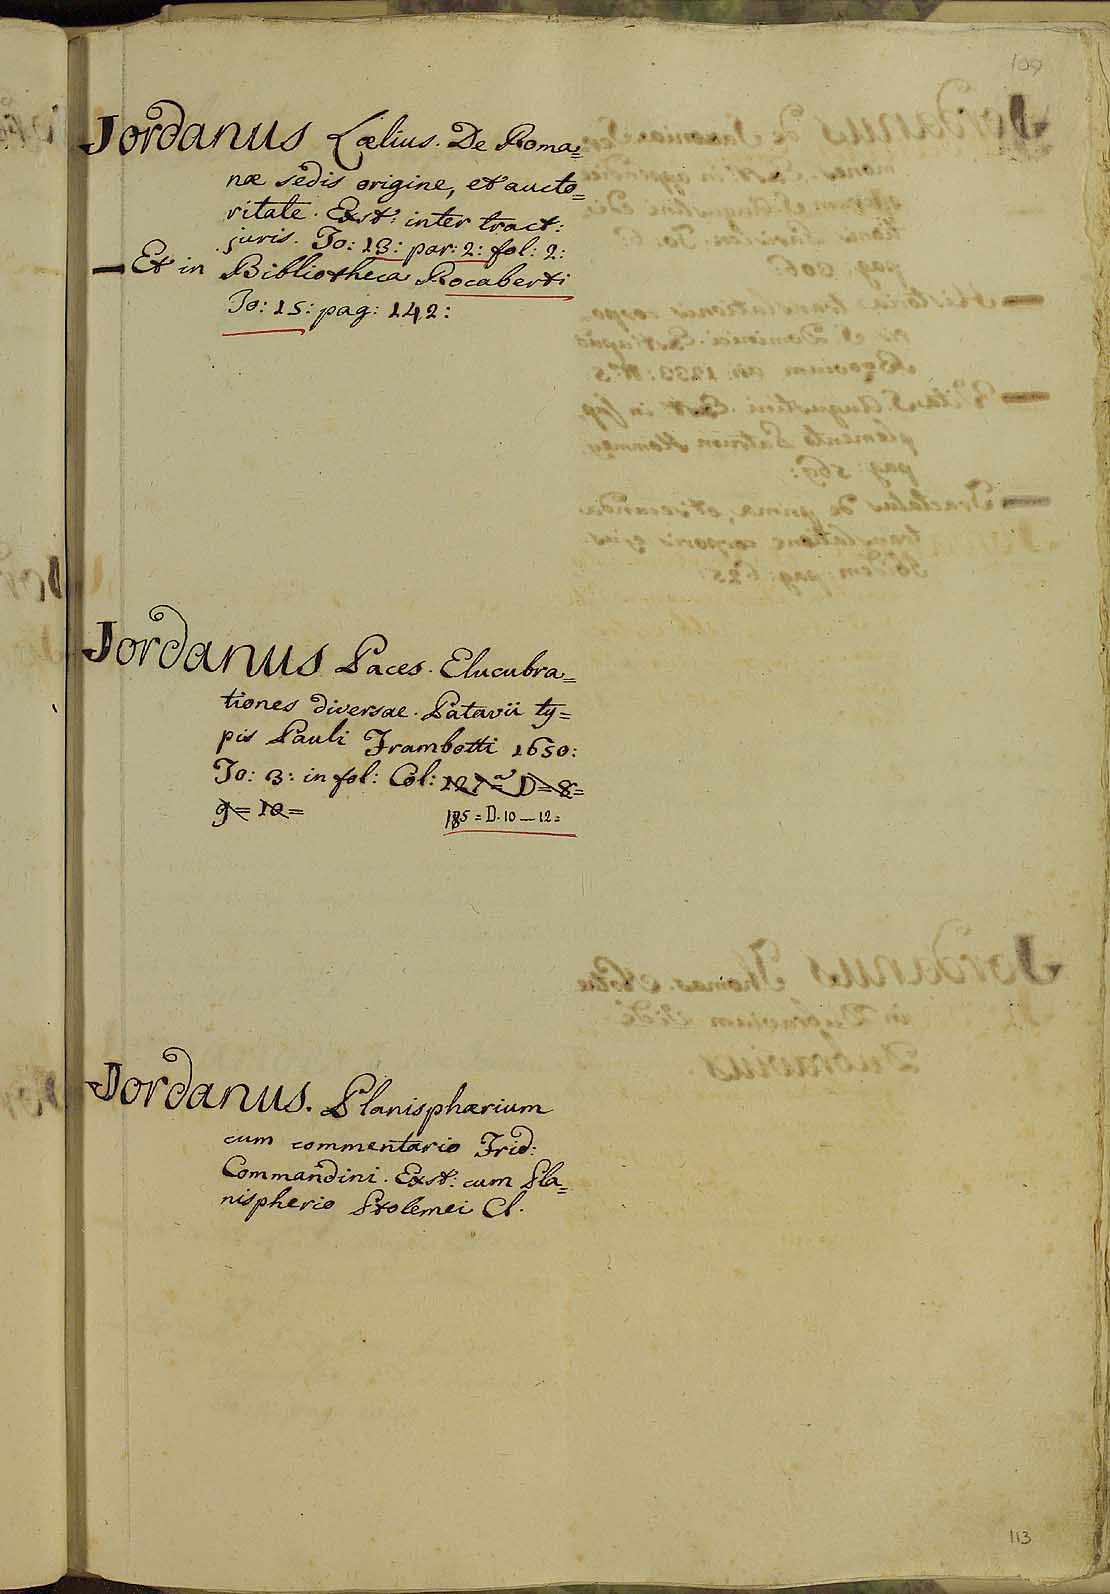 109
Jordanus Lælius. De Roma=
næ sedis origine, et aucto=
ritate. Exst: inter tract:
juris. To: 13: par: 2: fol: 2:
— Et in Bibliotheca Rocaberti
To: 15: pag: 142:
Jordanus Paces. Elucubra=
tiones diversae. Patavii ty=
pis Pauli Frambotti 1650:
To: 3: in fol: Col: 127=a D=8=
9=10=
185=D.10—12=
Jordanus. Planisphærium
cum commentario Frid:
Commandini. Exst: cum Pla=
nispherio Ptolemei Cl.
113